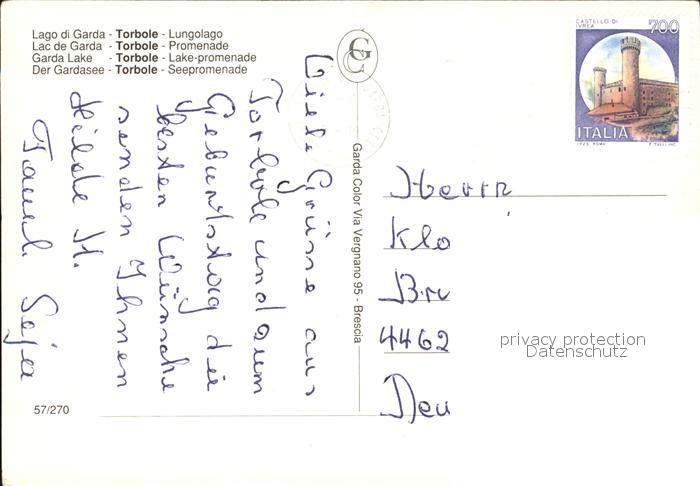 Lago di Garda - Torbole - Lungolago
Lac de Garda - Torbole - Promenade
Garda Lake - Torbole - Lake-promenade
Der Gardasee - Torbole - Seepromenade
Viele Grüsse aus
Torbole und zum
Geburtstag die
besten Wünsche
senden Ihnen
Hilde H.
Famil. Seja
57/270
Garda Color Via Vergnano 95 - Brescia
CASTELLO DI
IVREA
700
ITALIA
I.P.Z.S. ROMA
E. TULLI. INC.
Herrn
Klo
Bru
4462
Deu
privacy protection
Datenschutz